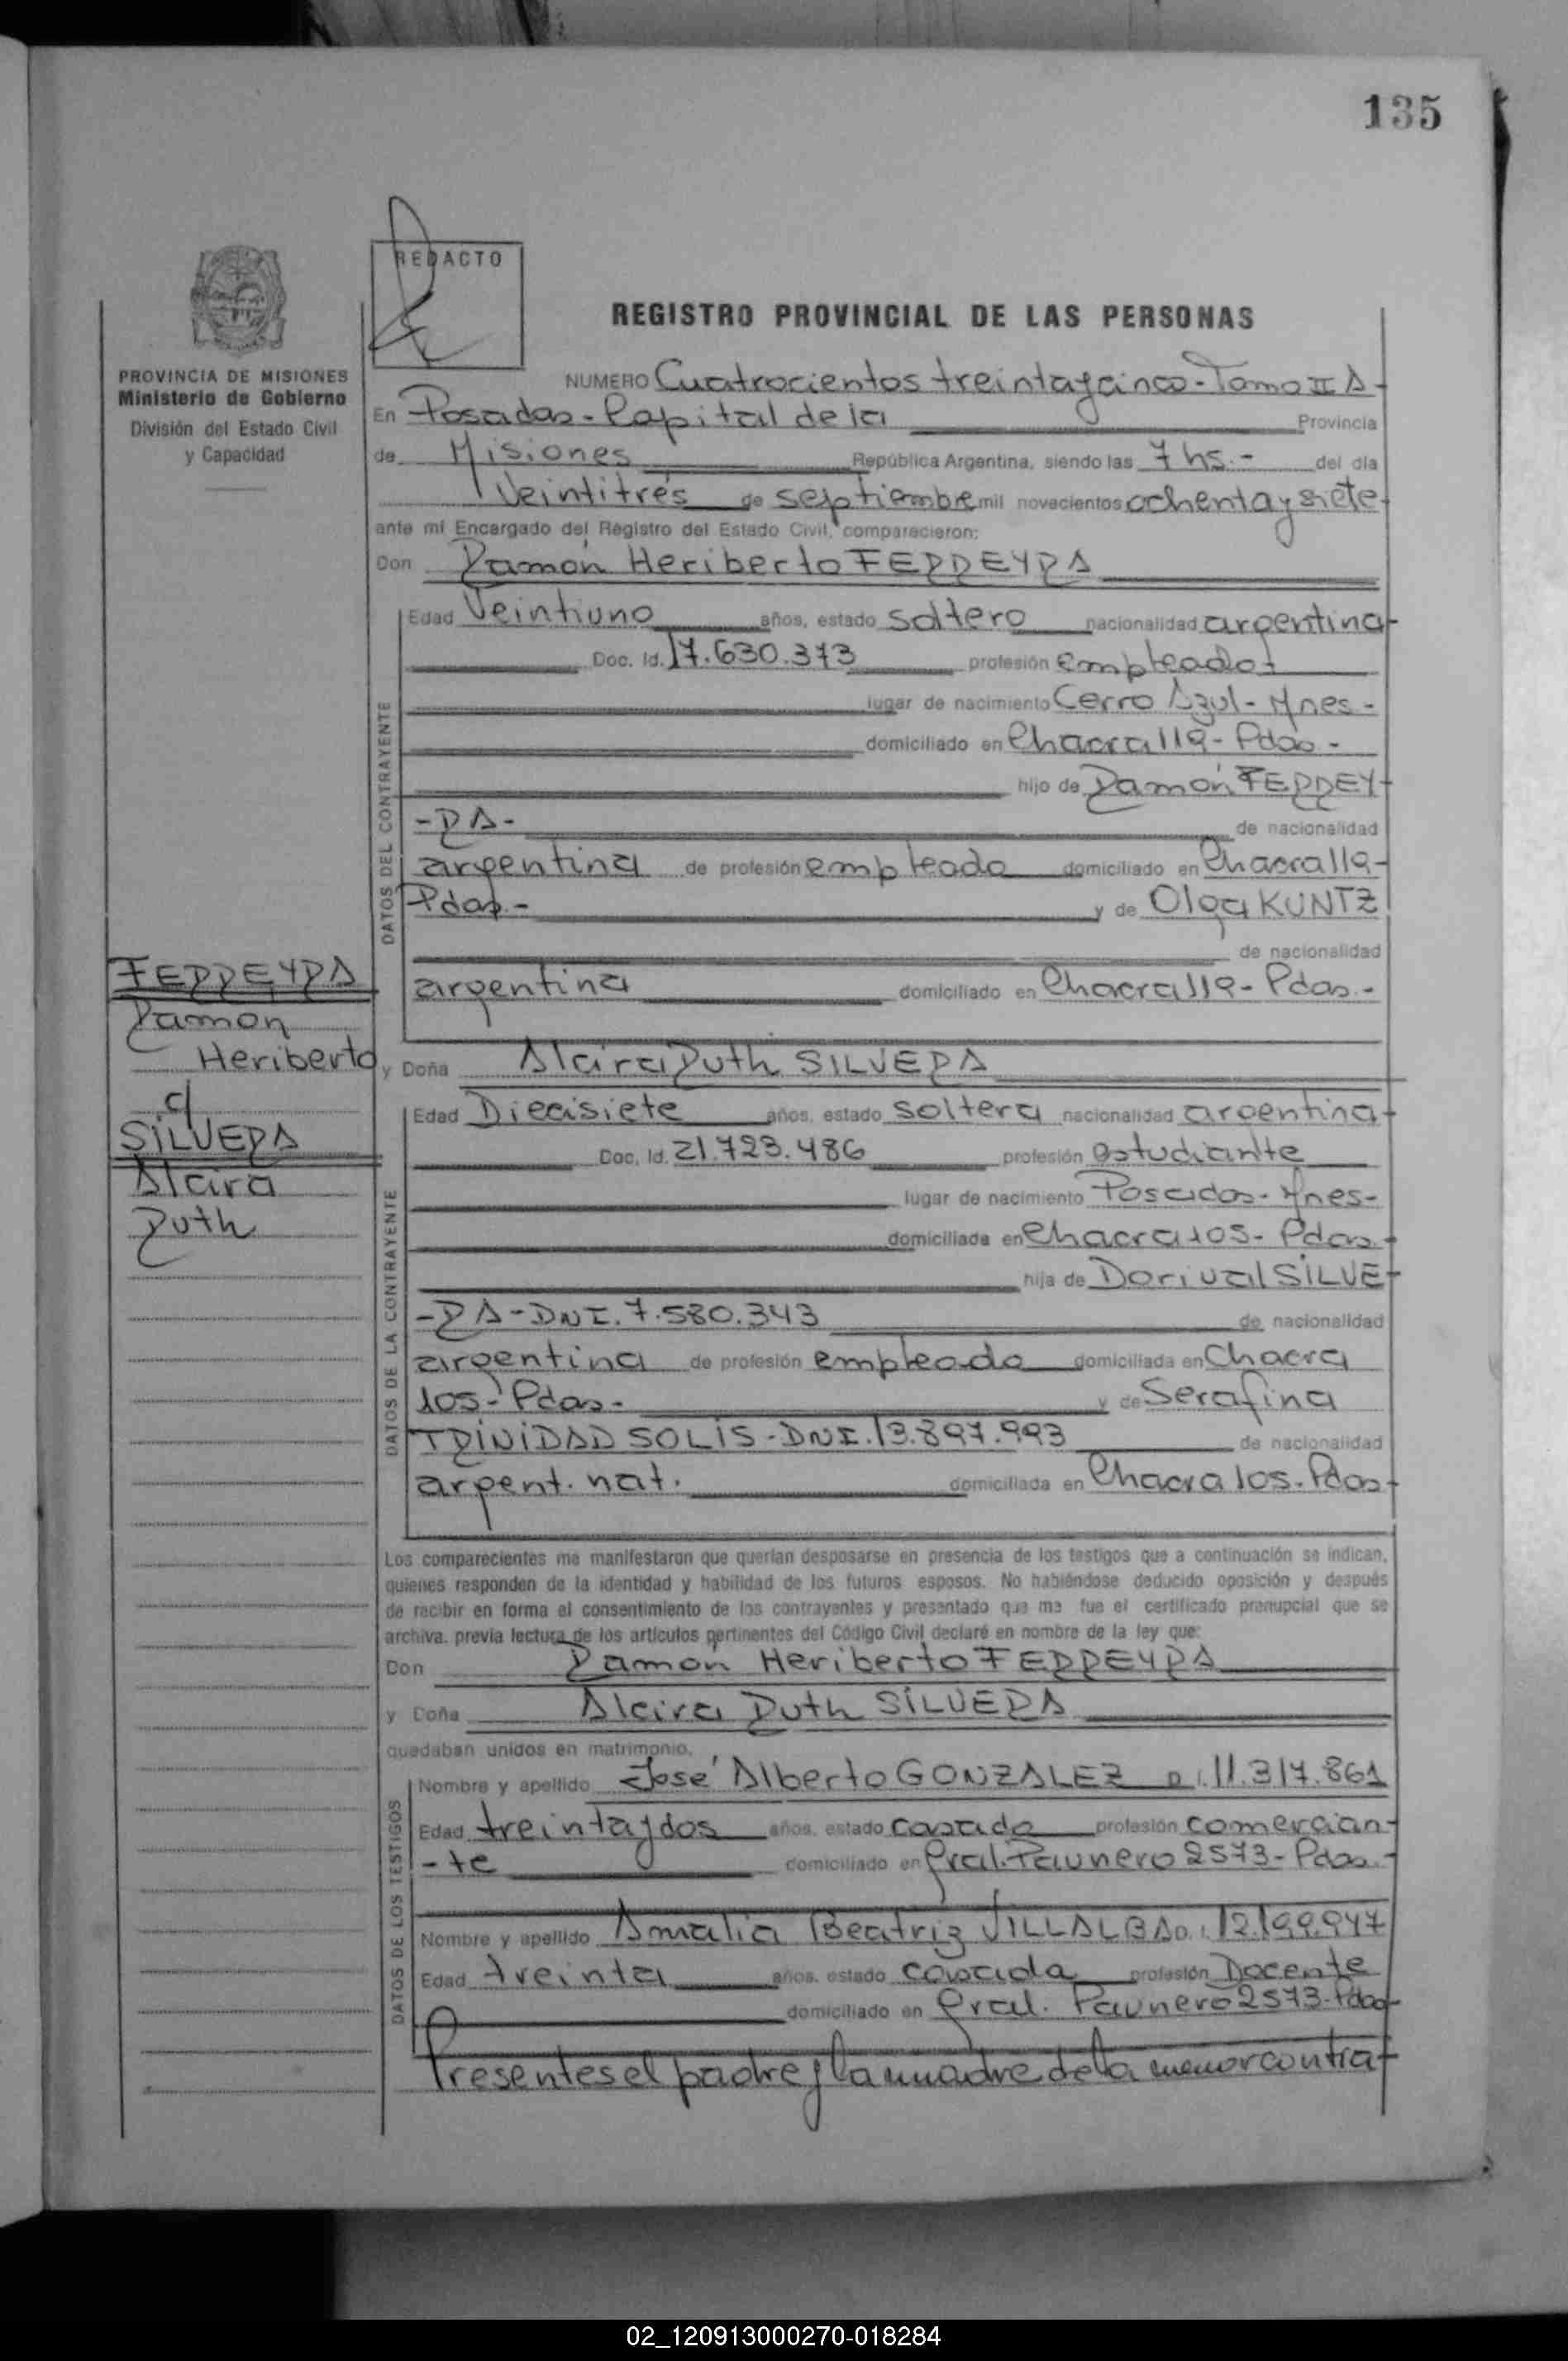 135
REDACTO
REGISTRO PROVINCIAL DE LAS PERSONAS
PROVINCIA DE MISIONES
Ministerio de Gobierno
División del Estado Civil
y Capacidad
NUMERO Cuatrocientos treintaycinco-Tomo II A-
En Posadas-Capital de la Provincia
de Misiones República Argentina, siendo las 7 hs.- del dia
Veintitrés de septiembre mil novecientos ochentaysiete-
ante mí Encargado del Registro del Estado Civil, comparecieron:
Don Ramón Heriberto FERREYRA
Edad Veintiuno años, estado soltero nacionalidad argentina-
Doc. Id. 17.630.373 profesión empleado-
lugar de nacimiento Cerro Azul-Mnes-
domiciliado en Chacra 119-Pdas-
hijo de Ramón FERREY-
-RA- de nacionalidad
argentina de profesión empleado domiciliado en Chacra 119-
Pdas- y de Olga KUNTZ
de nacionalidad
argentina domiciliado en Chacra 119-Pdas.-
FERREYRA
Ramón
Heriberto
c/
SILVERA
Alcira
Ruth
y Doña Alcira Ruth SILVERA
Edad Diecisiete años, estado soltera nacionalidad argentina-
Doc. Id. 21.723.486 profesión estudiante
lugar de nacimiento Posadas-Mnes-
domiciliada en Chacra 105-Pdas-
hija de Dorival SILVE-
-RA-DNI. 7.580.343 de nacionalidad
argentina de profesión empleado domiciliada en Chacra
105-Pdas- y de Serafina
TRINIDAD SOLIS-DNI. 13.897.993 de nacionalidad
argent. nat. domiciliada en Chacra 105-Pdas-
Los comparecientes me manifestaron que querían desposarse en presencia de los testigos que a continuación se indican,
quienes responden de la identidad y habilidad de los futuros esposos. No habiéndose deducido oposición y después
de recibir en forma el consentimiento de los contrayentes y presentado que me fue el certificado prenupcial que se
archiva. previa lectura de los artículos pertinentes del Código Civil declaré en nombre de la ley que:
Don Ramón Heriberto FERREYRA
y Doña Alcira Ruth SILVERA
quedaban unidos en matrimonio.
Nombre y apellido José Alberto GONZALEZ D.I. 11.317.861
Edad treintaydos años, estado casado profesión comercian-
-te domiciliado en Gral. Paunero 2573-Pdas.-
Nombre y apellido Amalia Beatriz VILLALBA D.I. 12.199.947
Edad treinta años, estado casada profesión Docente
domiciliado en Gral. Paunero 2573-Pdas-
Presentes el padre y la madre de la menor contra-
DATOS DEL CONTRAYENTE
DATOS DE LA CONTRAYENTE
DATOS DE LOS TESTIGOS
02_120913000270-018284